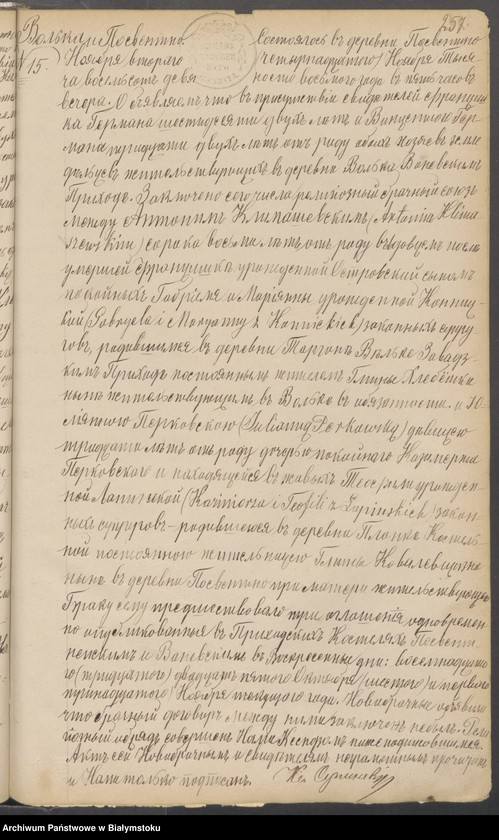 257.
Волька и Посвентно Состоялось въ деревни Посвентно
№ 15. Ноября втораго (четырнадцатаго) Ноября тыся-
ча восемьсотъ девя ностo восьмаго года въ пять часовъ
вечера. Объявляемъ что въ присутствіи свидѣтелей Францишка
Германа шестидесяти двухъ лѣтъ и Викентія Гер-
мана тридцати двухъ лѣтъ отъ роду обоихъ хозяевъ земле
дѣльцевъ жительствующихъ въ деревни Волька Ваневскимъ
Приходѣ. Заключено сего числа религіозный брачный союзъ
между Антонимъ Климашевскимъ (Antonim Klima
szewskim) сорока восьми лѣтъ отъ роду вдовцемъ послѣ
умершей Францишки урожденной Островскій сыномъ
покойныхъ Габріеля и Маріянны урожденной Конниц-
кій (Gabryela i Maryanny z Konnickich) законныхъ супру-
говъ, родившимся въ деревни Таргонѣ Волько Завадз-
кимъ Приходѣ постояннымъ жителемъ Гмины
нынѣ жительствующимъ въ Волько въ и Ю-
ліянною Перковскою (Julianną Perkowską) дѣвицею
тридцати лѣтъ отъ роду дочерью покойнаго Казимержа
Перковскаго и находящейся въ живыхъ Теофили урожден-
ной Лапинской (Kazimierza i Teofili z Łapińskich) закон-
ныхъ супруговъ - родившеюся въ деревни Плонка Косцель-
ной постоянною жительницею Гмины Ковалевщизна
нынѣ въ деревни Посвентно при матери жительствующею
Браку сему предшествовали три оглашенія одновремен-
но опубликованныя въ Приходскихъ Костеляхъ Посвент-
ненскимъ и Ваневскимъ въ Воскресенныя дни: восемнадцата
го (тридцатаго) двадцать пятаго Октября (шестого) и перваго
тринадцатаго) Ноября текущаго года. Новобрачные объявили
что брачный договоръ между ними заключонъ небылъ. Рели
гіозный обрядъ совершенъ Нами Ксендзомъ нижеподписавшимся.
Актъ сей Новобрачнымъ и свидѣтелямъ неграмотнымъ прочитанъ
и Нами только подписанъ.
Archiwum Państwowe w Białymstoku